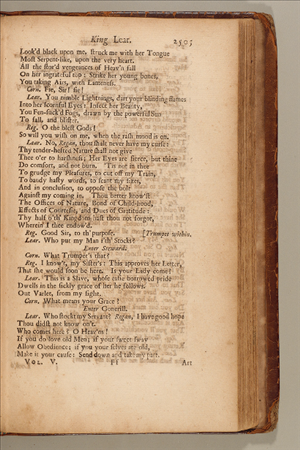 King Lear. 2505
Look'd black upon me, struck me with her Tongue
Most Serpent-like, upon the very heart.
All the stor'd vengeances of Heav'n fall
On her ingrateful top: Strike her young bones,
You taking Airs, with Lameness.
Corn. Fie, Sir! fie!
Lear. You nimble Lightnings, dart your blinding flames
Into her scornful Eyes: Infect her Beauty,
You Fen-suck'd Fogs, drawn by the powerful Sun
To fall, and blister.
Reg. O the blest Gods!
So will you wish on me, when the rash mood is on.
Lear. No, Regan, thou shalt never have my curse:
Thy tender-hefted Nature shall not give
Thee o'er to harshness; Her Eyes are fierce, but thine
Do comfort, and not burn. 'Tis not in thee
To grudge my Pleasures, to cut off my Train,
To bandy hasty words, to scant my sizes,
And in conclusion, to oppose the bolt
Against my coming in. Thou better know'st
The Offices of Nature, Bond of Child-hood,
Effects of Courtesie, and Dues of Gratitude:
Thy half o'th' Kingdom hast thou not forgot,
Wherein I thee endow'd.
Reg. Good Sir, to th' purpose. [Trumpet within.
Lear. Who put my Man i'th' Stocks?
Enter Steward.
Corn. What Trumpet's that?
Reg. I know't, my Sister's: This approves her Letter,
That she would soon be here. Is your Lady come?
Lear. This is a Slave, whose easie borrowed pride
Dwells in the sickly grace of her he follows.
Out Varlet, from my sight.
Corn. What means your Grace?
Enter Gonerill.
Lear. Who stockt my Servant? Regan, I have good hope
Thou didst not know on't.
Who comes here? O Heav'ns!
If you do love old Men; if your sweet sway
Allow Obedience; if you your selves are old,
Make it your cause: Send down and take my part.
VOL. V. Art